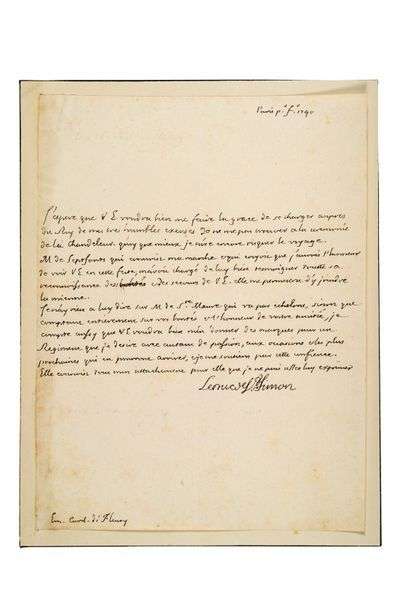 Paris p.r f.r 1740
J'espere que V E voudra bien me faire la grace de se charger aupres
du Roy de mes tres humbles excuses de ne me pas trouver a la ceremonie
de la Chandeleur. quoy que mieux, je n'ose encore risquer le voyage.
M de Septfonts qui ma croyoit que j'aurois l'honneur
de voir V E en cette feste, m'avoit chargé de luy bien temoigner toutte sa
reconnoissance des et des secours de V E. elle me permettra d'y joindre
la mienne.
Je n'ay rien a luy dire sur M de S.te Maure qui va par echelons, sinon que
comptant entierement sur vos bontés et l'honneur de votre amitié, je
compte aussy que V E voudra bien m'en donner des marques pour un
Regiment que je desire avec autant de passion, aux occasions les plus
prochaines qui en pourront arriver, et je me soutiens par cette confiance.
Elle connoist trop mon attachement pour elle que je ne puis assés luy exprimer
Le duc de S Simon
Em. Card. de Fleury